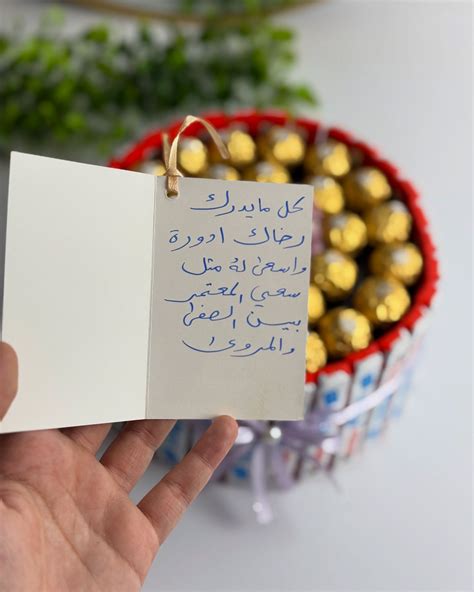 كل مايدرك
رضاك ادورة
واسعى له مثل
سعي المعتمر
بين الصفى
والمروى